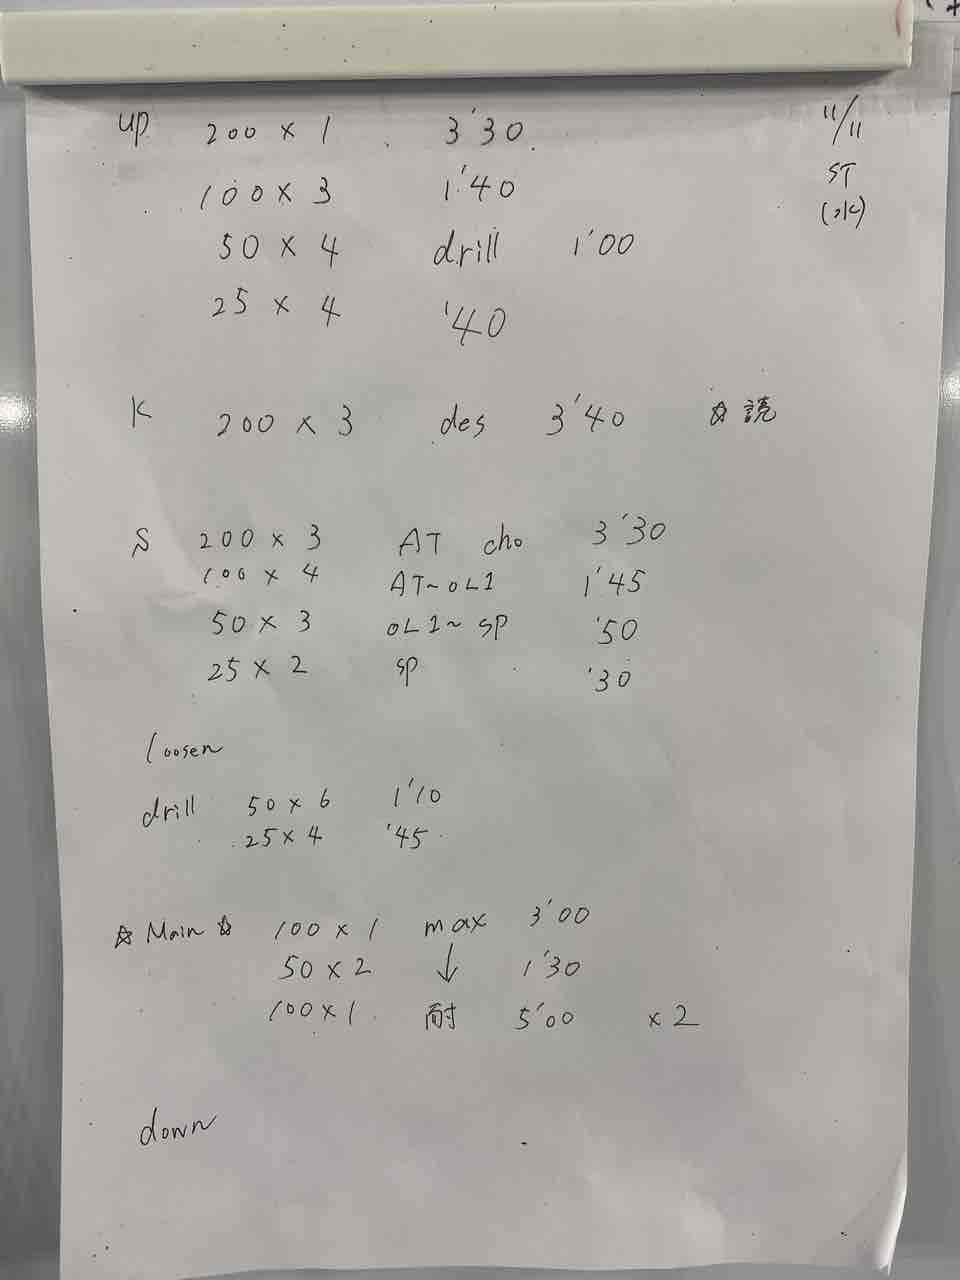 up 200 × 1 3'30 11/11
100 × 3 1'40 ST
(水)
50 × 4 drill 1'00
25 × 4 '40
K 200 × 3 des 3'40 ☆読
S 200 × 3 AT cho 3'30
100 × 4 AT~OL1 1'45
50 × 3 OL1~SP '50
25 × 2 SP '30
loosen
drill 50 × 6 1'10
25 × 4 '45
☆Main☆ 100 × 1 max 3'00
50 × 2 ↓ 1'30
100 × 1 耐 5'00 × 2
down